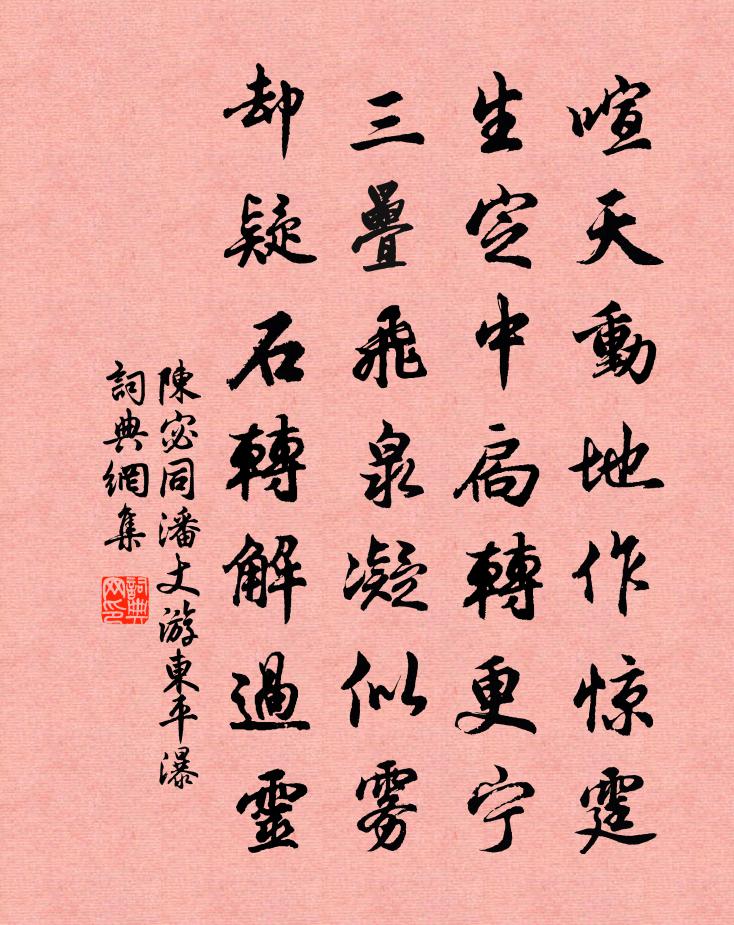 喧天動地作惊霆
生定中扃轉更宁
三疊飛泉凝似雾
却疑石轉解過靈
陳宓同潘丈游東平瀑
詞典網集
詞典网印